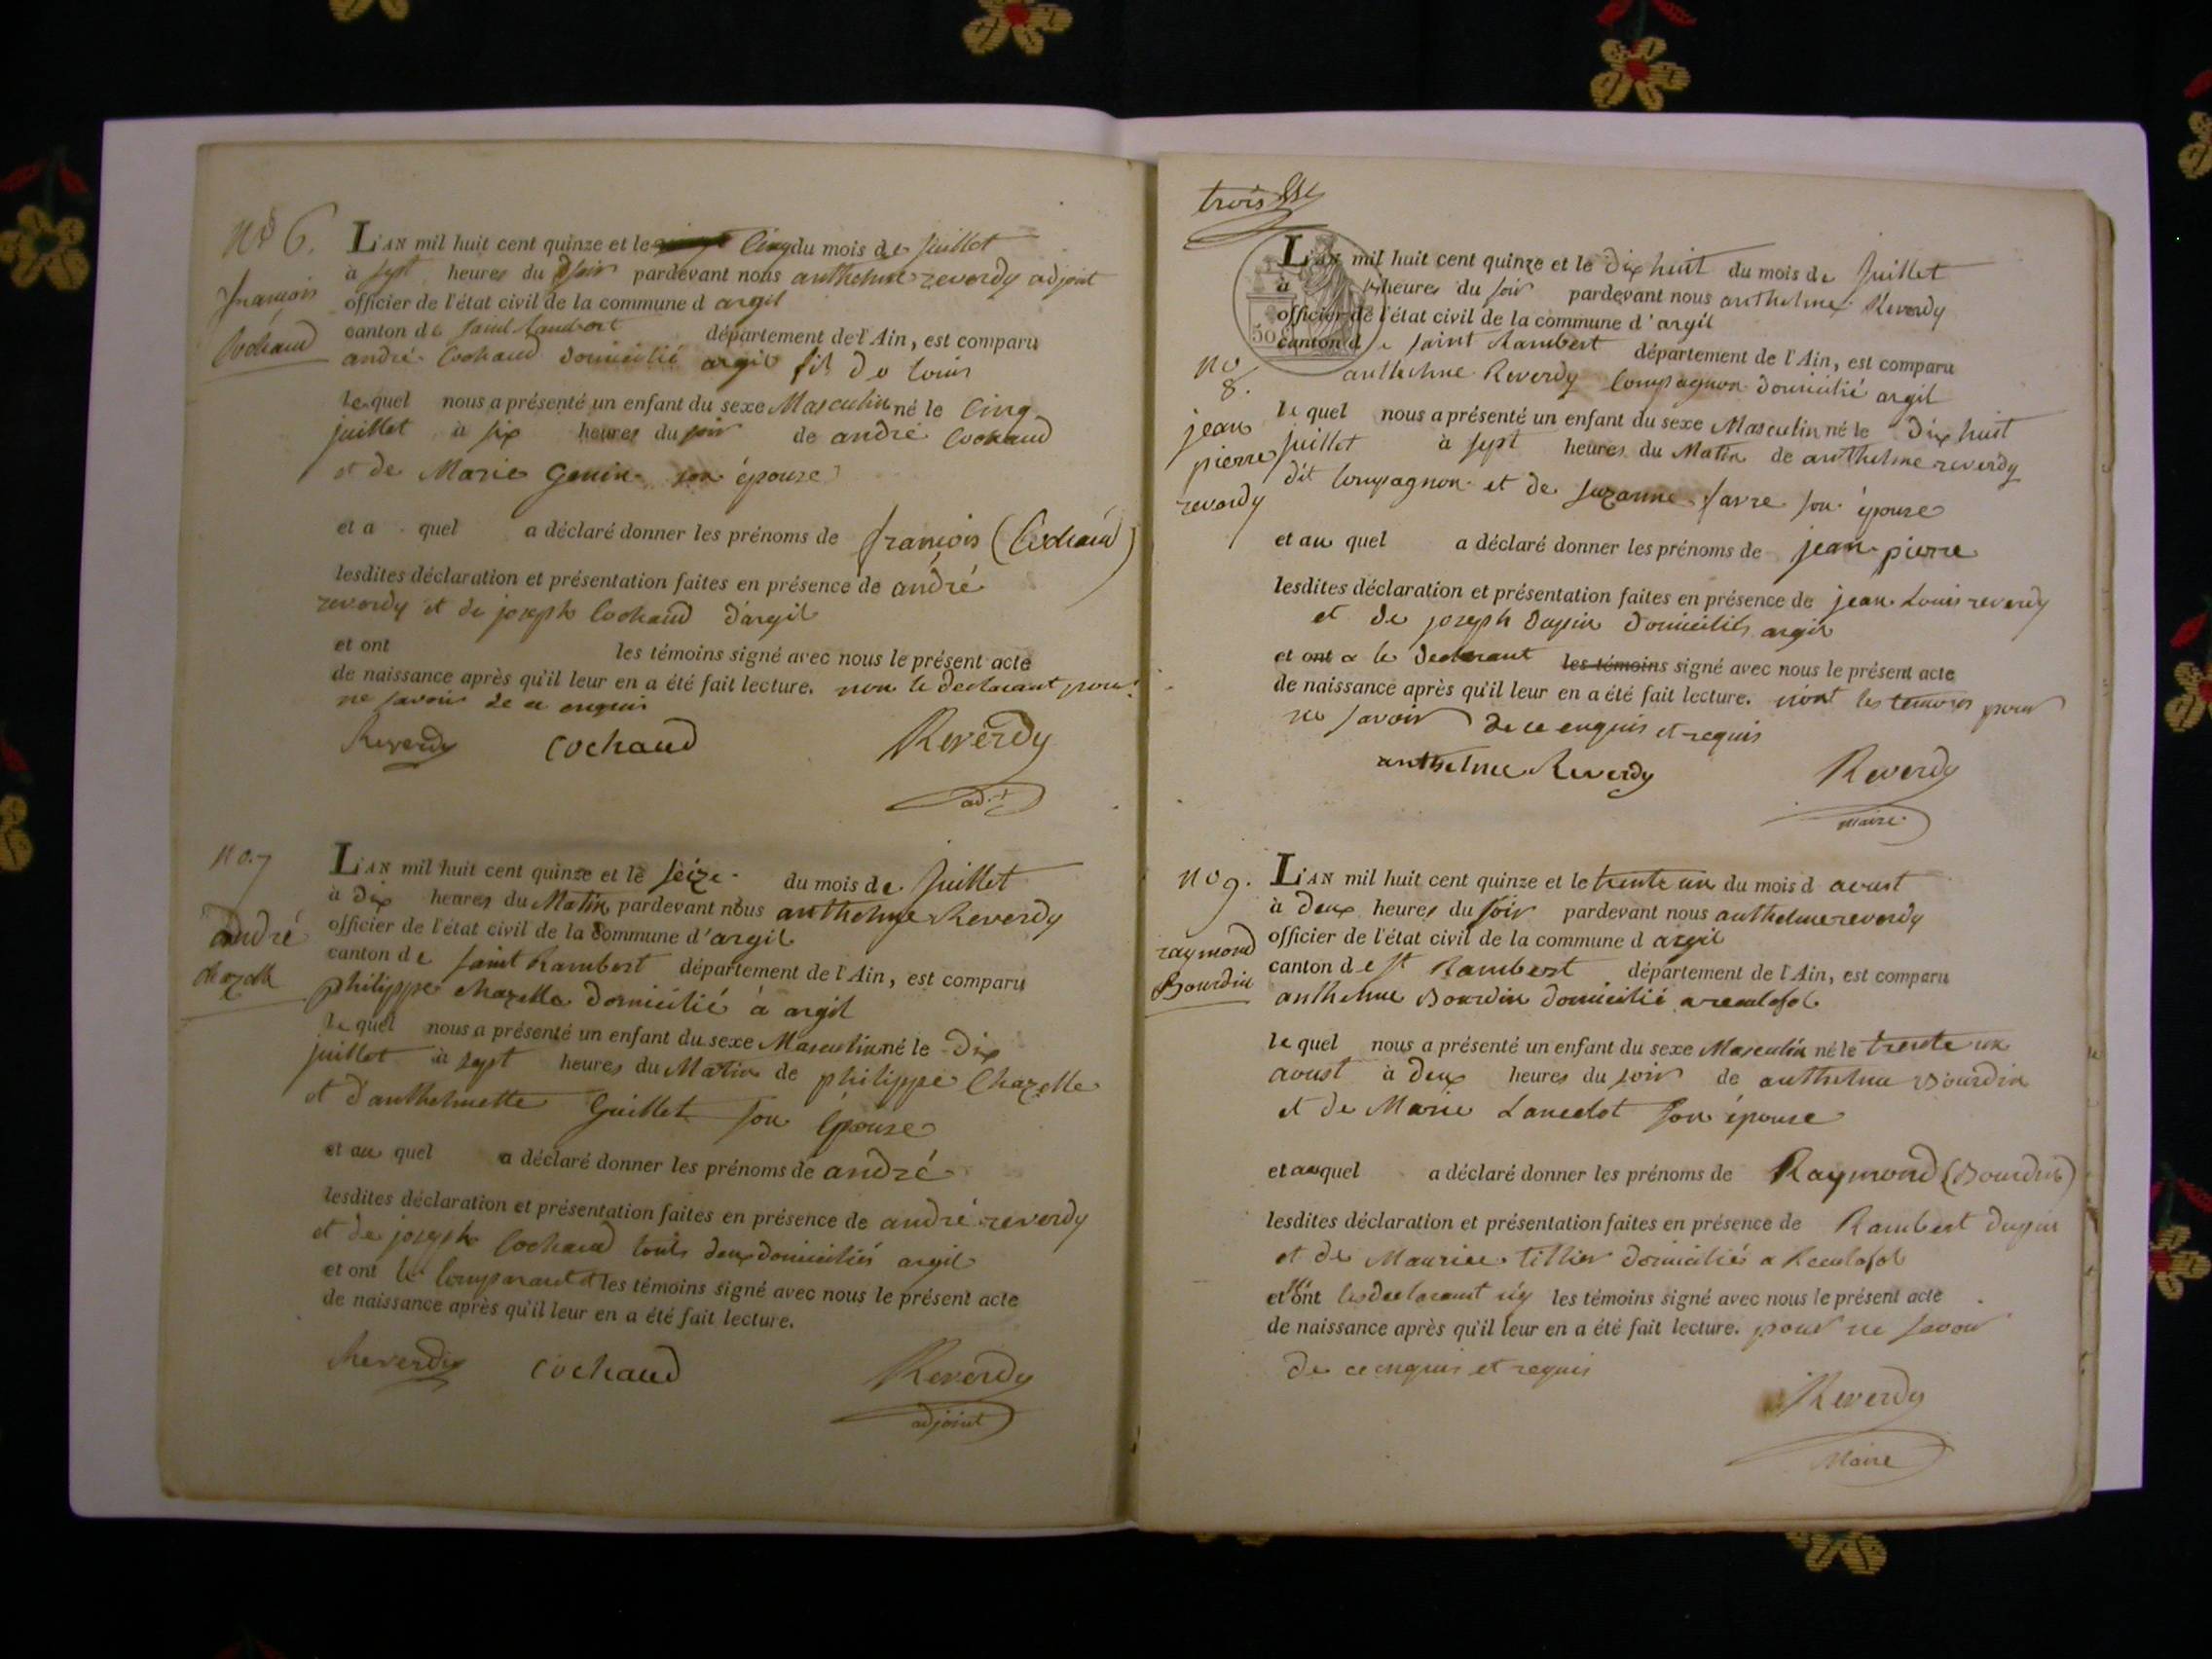 No 6.
françois
Cochaud
L'AN mil huit cent quinze et le cinq du mois de juillet
à sept heures du soir pardevant nous anthelme reverdy adjoint
officier de l'état civil de la commune d argil
canton de saint Rambert département de l'Ain, est comparu
andré Cochaud domicilié argil fils de louis
le quel nous a présenté un enfant du sexe Masculin né le cinq
juillet à six heures du soir de andré Cochaud
et de Marie Genin son épouse
et a quel a déclaré donner les prénoms de françois (Cochaud)
lesdites déclaration et présentation faites en présence de andré
reverdy et de joseph Cochaud d'argil
et ont les témoins signé avec nous le présent acte
de naissance après qu'il leur en a été fait lecture. non le declarant pour
ne savoir de ce enquis
Reverdy cochaud Reverdy
adj.t
No. 7
andré
chazelle
L'AN mil huit cent quinze et le seize du mois de juillet
à dix heures du Matin pardevant nous anthelme Reverdy
officier de l'état civil de la commune d'argil
canton de saint Rambert département de l'Ain, est comparu
philippe chazelle domicilié à argil
le quel nous a présenté un enfant du sexe Masculin né le dix
juillet à sept heures du Matin de philippe Chazelle
et d'anthelmette Guillet son épouse
et au quel a déclaré donner les prénoms de andré
lesdites déclaration et présentation faites en présence de andré reverdy
et de joseph Cochaud touts deux domiciliés argil
et ont le comparant et les témoins signé avec nous le présent acte
de naissance après qu'il leur en a été fait lecture.
Reverdy cochaud Reverdy
adjoint
trois
50
no
8.
jean
pierre
reverdy
L'AN mil huit cent quinze et le dix huit du mois de juillet
à heures du soir pardevant nous anthelme Reverdy
officier de l'état civil de la commune d'argil
canton de saint Rambert département de l'Ain, est comparu
anthelme Reverdy Compagnon domicilié argil
le quel nous a présenté un enfant du sexe Masculin né le dix huit
juillet à sept heures du Matin de anthelme reverdy
dit compagnon et de suzanne favre son épouse
et au quel a déclaré donner les prénoms de jean pierre
lesdites déclaration et présentation faites en présence de jean Louis reverdy
et de joseph dupin domiciliés argil
et ont a le declarant les témoins signé avec nous le présent acte
de naissance après qu'il leur en a été fait lecture. non les temoins pour
ne savoir de ce enquis et requis
anthelme Reverdy Reverdy
maire
no 9.
raymond
Bourdin
L'AN mil huit cent quinze et le trente un du mois d aoust
à deux heures du soir pardevant nous anthelme reverdy
officier de l'état civil de la commune d argil
canton de st Rambert département de l'Ain, est comparu
anthelme Bourdin domicilié a reculafol
le quel nous a présenté un enfant du sexe Masculin né le trente un
aoust à deux heures du soir de anthelme Bourdin
et de Marie Lancelot son épouse
et auquel a déclaré donner les prénoms de Raymond (Bourdin)
lesdites déclaration et présentation faites en présence de Rambert dupin
et de Maurice tillier domiciliés a Reculafol
et n'ont les declarant n'y les témoins signé avec nous le présent acte
de naissance après qu'il leur en a été fait lecture. pour ne savoir
de ce enquis et requis
Reverdy
Maire